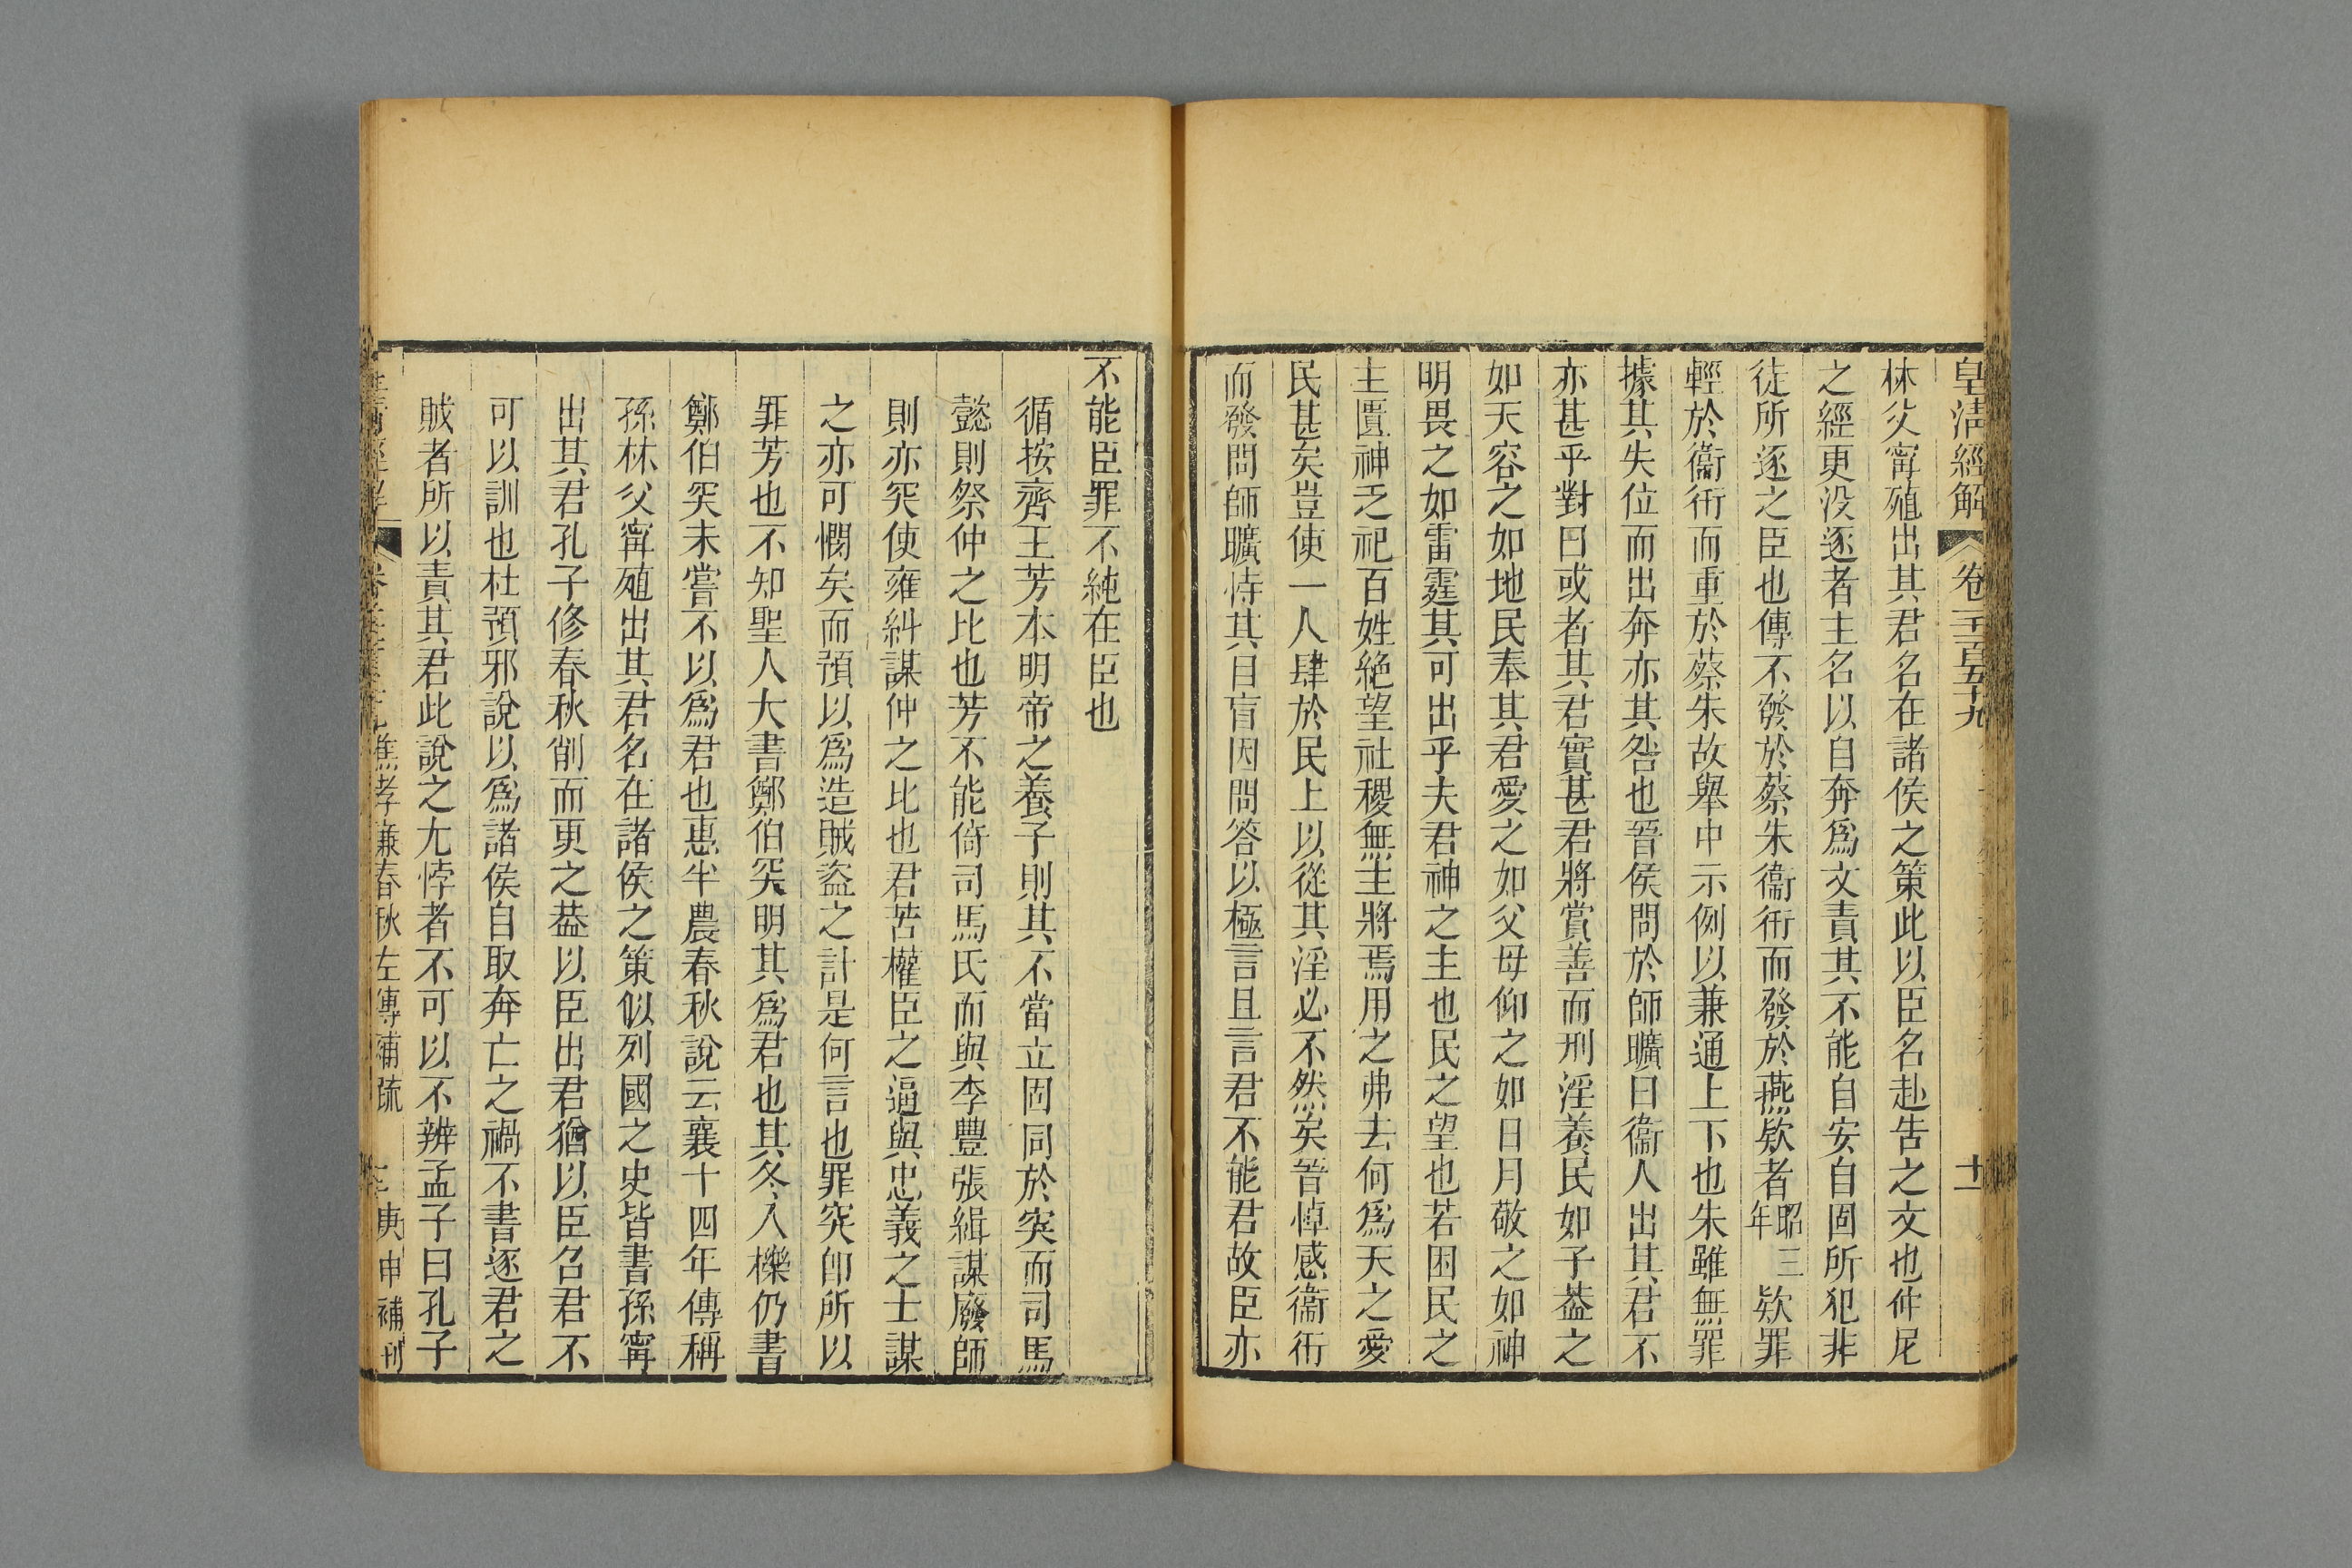 皇淸經解
卷一千一百五十九
十一
林父甯殖出其君名在諸侯之策此以臣名赴告之文也仲尼
之經更没逐者主名以自奔爲文責其不能自安自固所犯非
徒所逐之臣也傳不發於蔡朱衞衎而發於燕欵者昭三年欵罪
輕於衞衎而重於蔡朱故舉中示例以兼通上下也朱雖無罪
據其失位而出奔亦其咎也晉侯問於師曠曰衞人出其君不
亦甚乎對曰或者其君實甚君將賞善而刑淫養民如子葢之
如天容之如地民奉其君愛之如父母仰之如日月敬之如神
明畏之如雷霆其可出乎夫君神之主也民之望也若困民之
主匱神乏祀百姓絶望社稷無主將焉用之弗去何爲天之愛
民甚矣豈使一人肆於民上以從其淫必不然矣晉悼感衞衎
而發問師曠恃其目盲因問答以極言且言君不能君故臣亦
不能臣罪不純在臣也
循按齊王芳本明帝之養子則其不當立固同於突而司馬
懿則祭仲之比也芳不能倚司馬氏而與李豐張緝謀廢師
則亦突使雍糾謀仲之比也君苦權臣之逼與忠義之士謀
之亦可憫矣而預以爲造賊盜之計是何言也罪突卽所以
罪芳也不知聖人大書鄭伯突明其爲君也其冬入櫟仍書
鄭伯突未嘗不以爲君也惠半農春秋說云襄十四年傳稱
孫林父甯殖出其君名在諸侯之策似列國之史皆書孫甯
出其君孔子修春秋削而更之葢以臣出君猶以臣召君不
可以訓也杜預邪說以爲諸侯自取奔亡之禍不書逐君之
賊者所以責其君此說之尤悖者不可以不辨孟子曰孔子
皇淸經解
焦孝廉春秋左傳補疏
庚申補刊